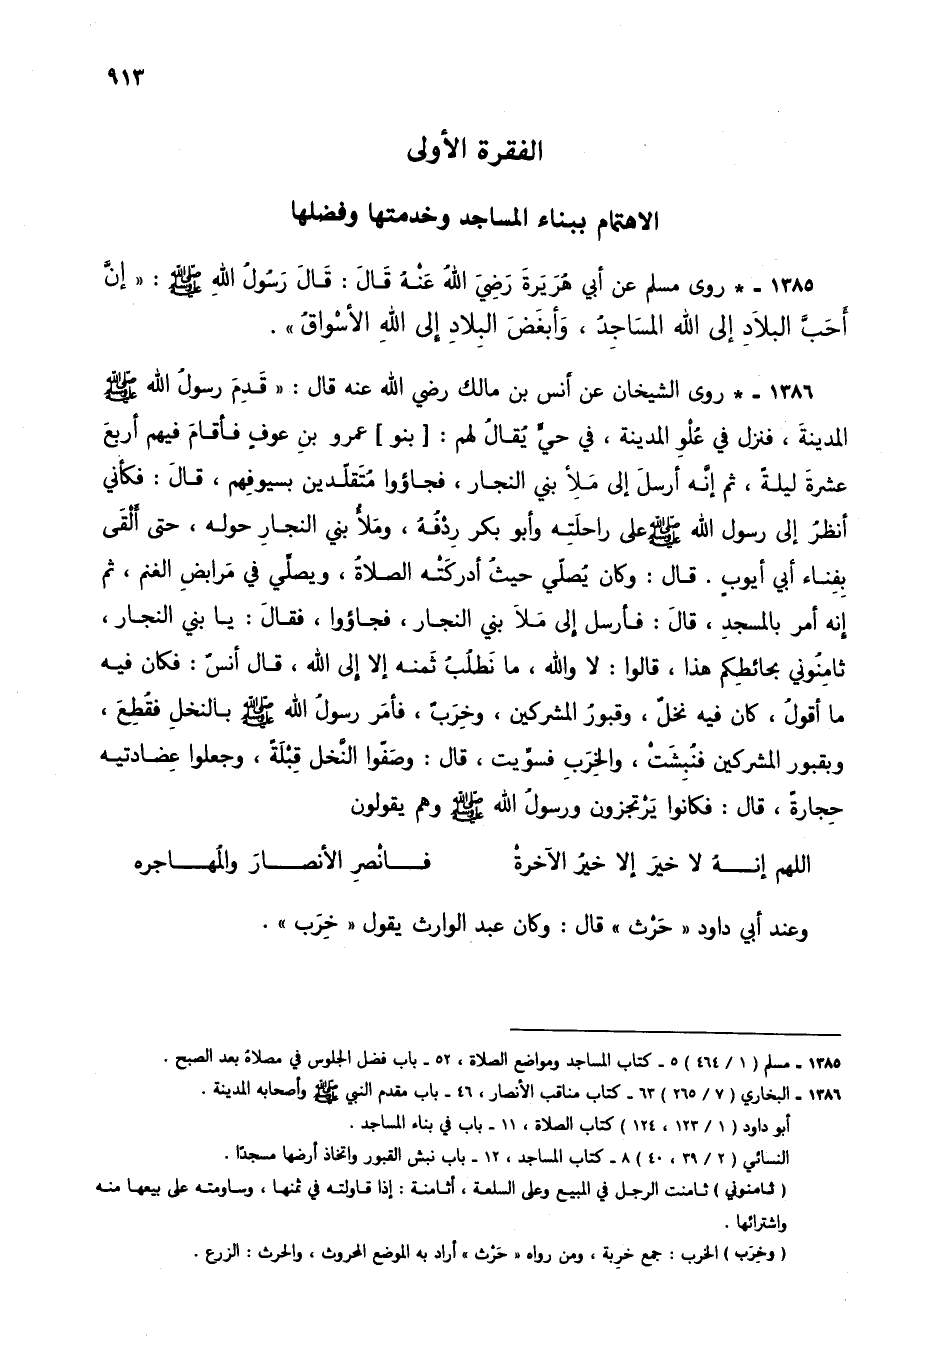 ٩١٣
الفقرة الأولى
الاهتمام ببناء المساجد وخدمتها وفضلها
١٣٨٥ - * روى مسلم عن أبي هُرَيرَةَ رَضِيَ اللهُ عَنْهُ قَالَ : قَالَ رَسُولُ اللهِ ﷺ : « إنَّ
أَحَبَّ البلاَدِ إلى الله المسَاجِدُ ، وَأبغَضَ البلادِ إلى اللهِ الأسْواقُ » .
١٣٨٦ - * روى الشيخان عن أنس بن مالك رضي الله عنه قال : « قَدِمَ رسولُ الله ﷺ
المدينةَ ، فنزل في عُلْوِ المدينة ، في حيٍّ يُقالُ لهم : [ بنو ] عمرو بنِ عوفٍ فأقامَ فيهم أربعَ
عشرةَ ليلةً ، ثم إنَّه أرسلَ إلى مَلأِ بني النجار ، فجاؤوا مُتَقلّدين بسيوفهم ، قالَ : فكأني
أنظرُ إلى رسول الله ﷺ على راحلَتِه وأبو بكر رِدْفُهُ ، ومَلأُ بني النجارِ حوله ، حتى أَلْقَى
بِفِناء أبي أيوبٍ . قال : وكان يُصلّي حيثُ أدركَتْه الصلاةُ ، ويصلّي في مَرابضِ الغنم ، ثم
إنه أمر بالمسجدِ ، قالَ : فأرسل إلى مَلأ بني النجار ، فجاؤوا ، فقالَ : يا بني النجار ،
ثامِنُوني بحائطِكم هذا ، قالوا : لا والله ، ما نَطلُبُ ثَمنه إلا إلى الله ، قال أنسٌ : فكان فيه
ما أقولُ ، كان فيه نخلٌ ، وقبورُ المشركين ، وخِرَبٌ ، فأمَر رسولُ الله ﷺ بالنخلِ فقُطِعَ ،
وبقبور المشركين فنُبشَتْ ، والخِرَبِ فسوِّيت ، قال : وصَفّوا النَّخل قِبْلَةً ، وجعلوا عِضادتيه
حِجارةً ، قال : فكانوا يَرْتجزون ورسولُ الله ﷺ وهم يقولون
اللهم إنــه لا خيرَ إلا خيرُ الآخرةْ فــانْصرِ الأنصــارَ والُمهــاجره
وعند أبي داود « حَرْث » قال : وكان عبد الوارث يقول « خِرَب » .
١٣٨٥ - مسلم ( ١ / ٤٦٤ ) ٥ - كتاب المساجد ومواضع الصلاة ، ٥٢ - باب فضل الجلوس في مصلاهُ بعد الصبح .
١٣٨٦ - البخاري ( ٧ / ٢٦٥ ) ٦٣ - كتاب مناقب الأنصار ، ٤٦ - باب مقدم النبي ﷺ وأصحابه المدينة .
أبو داود ( ١ / ١٢٣ ، ١٢٤ ) كتاب الصلاة ، ١١ - باب في بناء المساجد .
النسائي ( ٢ / ٣٩ ، ٤٠ ) ٨ - كتاب المساجد ، ١٢ - باب نبش القبور واتخاذ أرضها مسجدًا .
( ثامنوني ) ثامنت الرجل في المبيع وعلى السلعة ، أثامنة : إذا قاولته في ثمنها ، وساومته على بيعها منه
واشترائها .
( وخِرَب ) الخرب : جمع خربة ، ومن رواه « حَرْث » أراد به الموضع المحروث ، والحرث : الزرع .